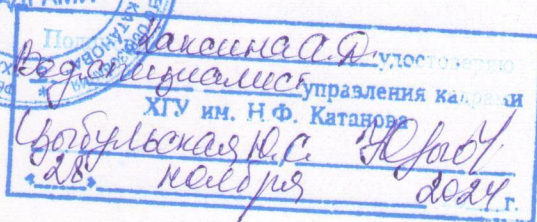 КАТАНОВА
Подпись Максина А.Д. удостоверяю
Вед. специалист управления кадрами
ХГУ им. Н.Ф. Катанова
Цыбульская Ю.С.
"28" ноября 2024 г.